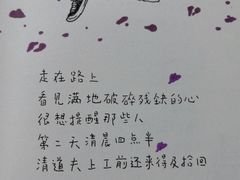 走在路上
看見滿地破碎殘缺的心
很想提醒那些人
第二天清晨四點半
清道夫上工前还來得及拾回